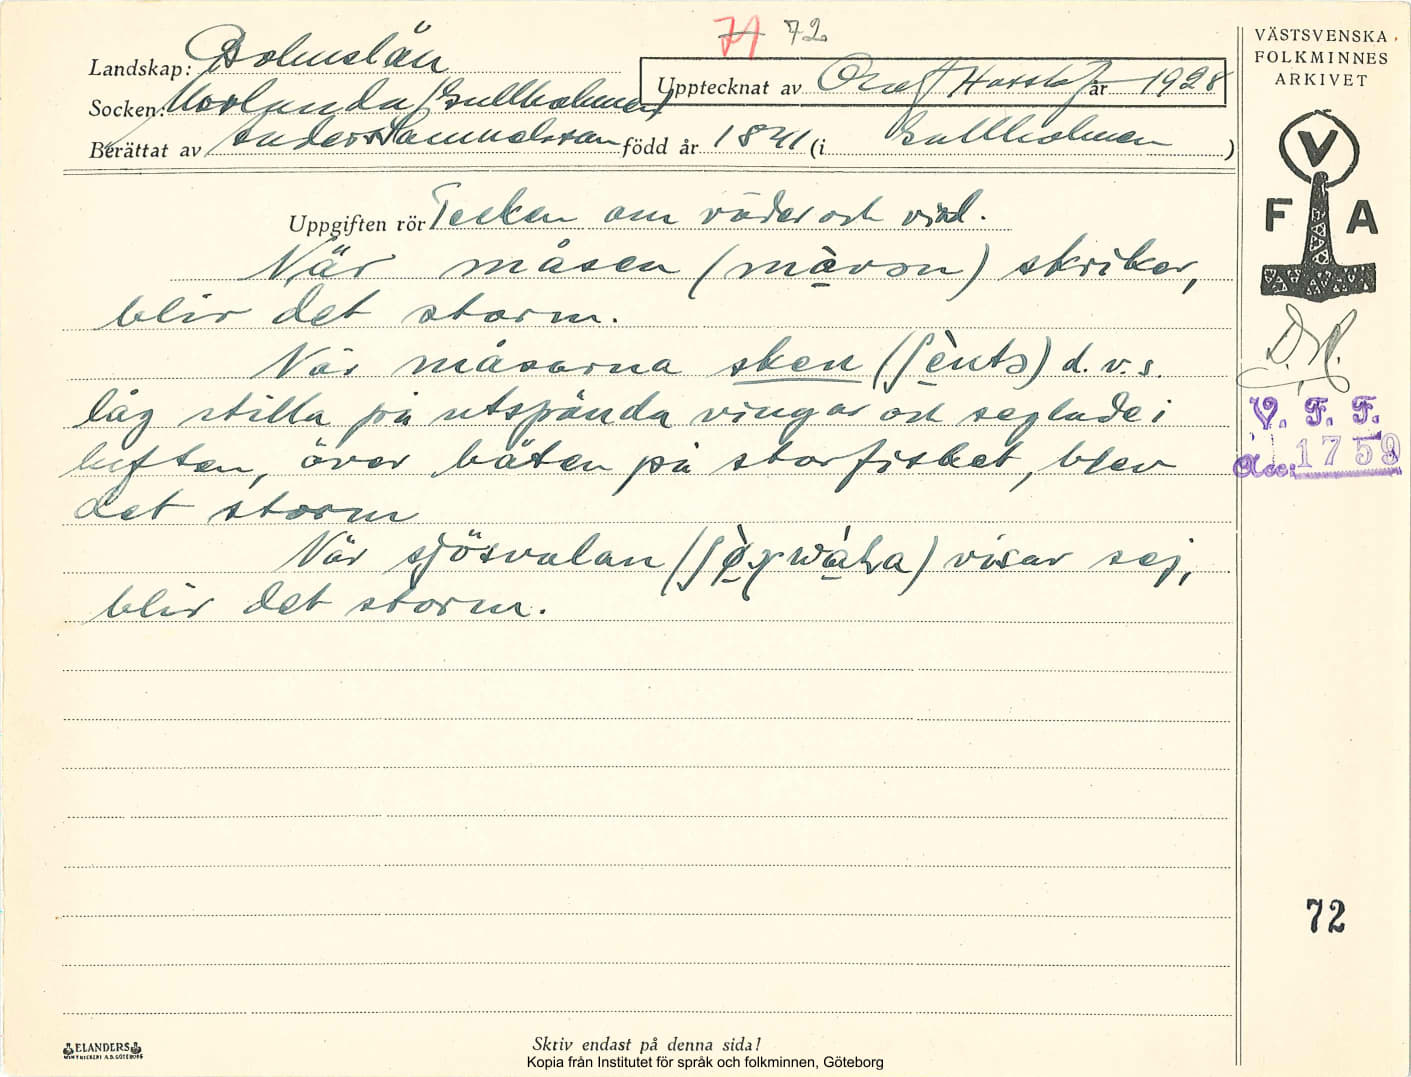 71 72
VÄSTSVENSKA
FOLKMINNES
ARKIVET
Landskap: Bohuslän
Upptecknat av Olof Hasslöf år 1928
Socken: Morlanda (Gullholmen)
Berättat av Anders Samuelsson född år 1841 (i Gullholmen)
V
F A
Uppgiften rör Tecken om väder och vind.
När måsen (màvon) skriker,
blir det storm.
När måsarna sken (ʃènts) d.v.s.
låg stilla på utspända vingar och seglade i
luften, över båten på storfisket, blev
det storm
När sjösvalan ( ) visar sej,
blir det storm.
V. F. F.
Acc: 1759
72
ELANDERS
Skriv endast på denna sida!
Kopia från Institutet för språk och folkminnen, Göteborg